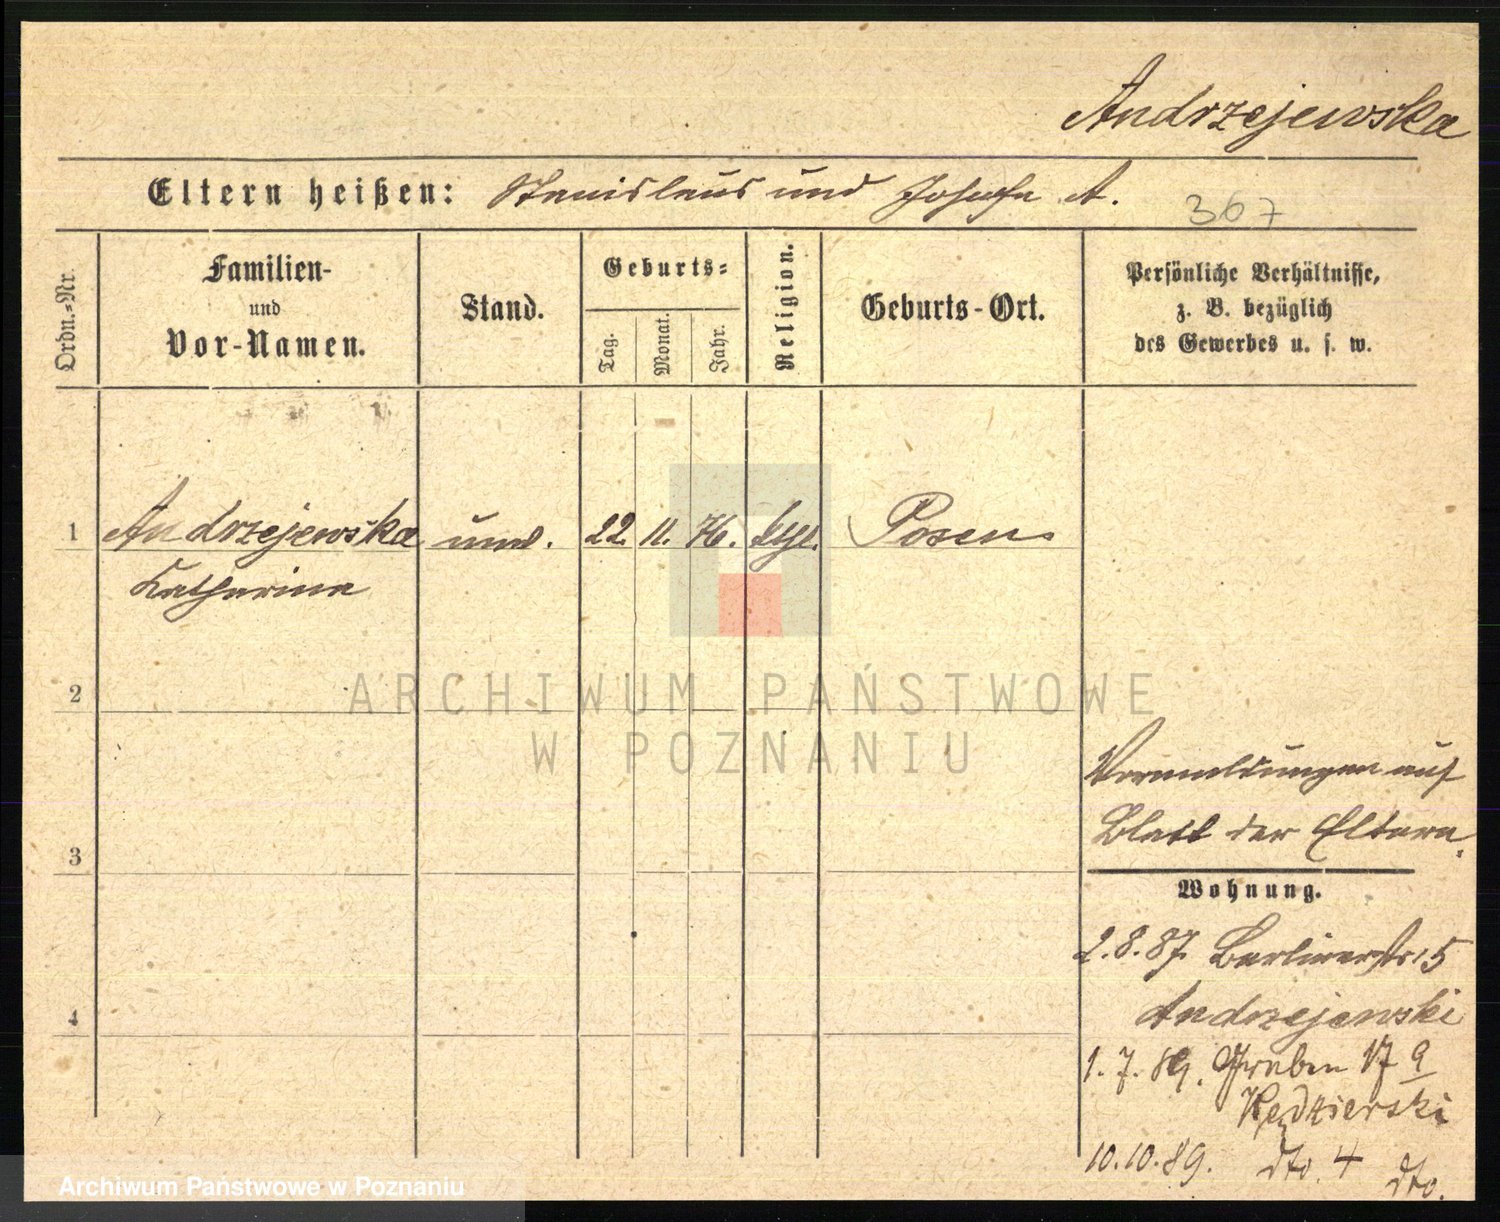 Andrzejewska
Eltern heißen: Stanislaus und Josefa A.
367
Ordn.=Nr.
Familien-
und
Vor-Namen.
Stand.
Geburts=
Tag.
Monat.
Jahr.
Religion.
Geburts-Ort.
Persönliche Verhältnisse,
z. B. bezüglich
des Gewerbes u. s. w.
1 Andrzejewska 22. 11. 76. Posen
Katharina
2
ARCHIWUM PAŃSTWOWE
W POZNANIU
Vormeldungen auf
Blatt der Eltern.
3
Wohnung.
2.8.87. Berlinerstr 15
Andrzejewski
4
1.7.89. Graben
Kędzierski
10.10.89. dto. 4 dto.
Archiwum Państwowe w Poznaniu